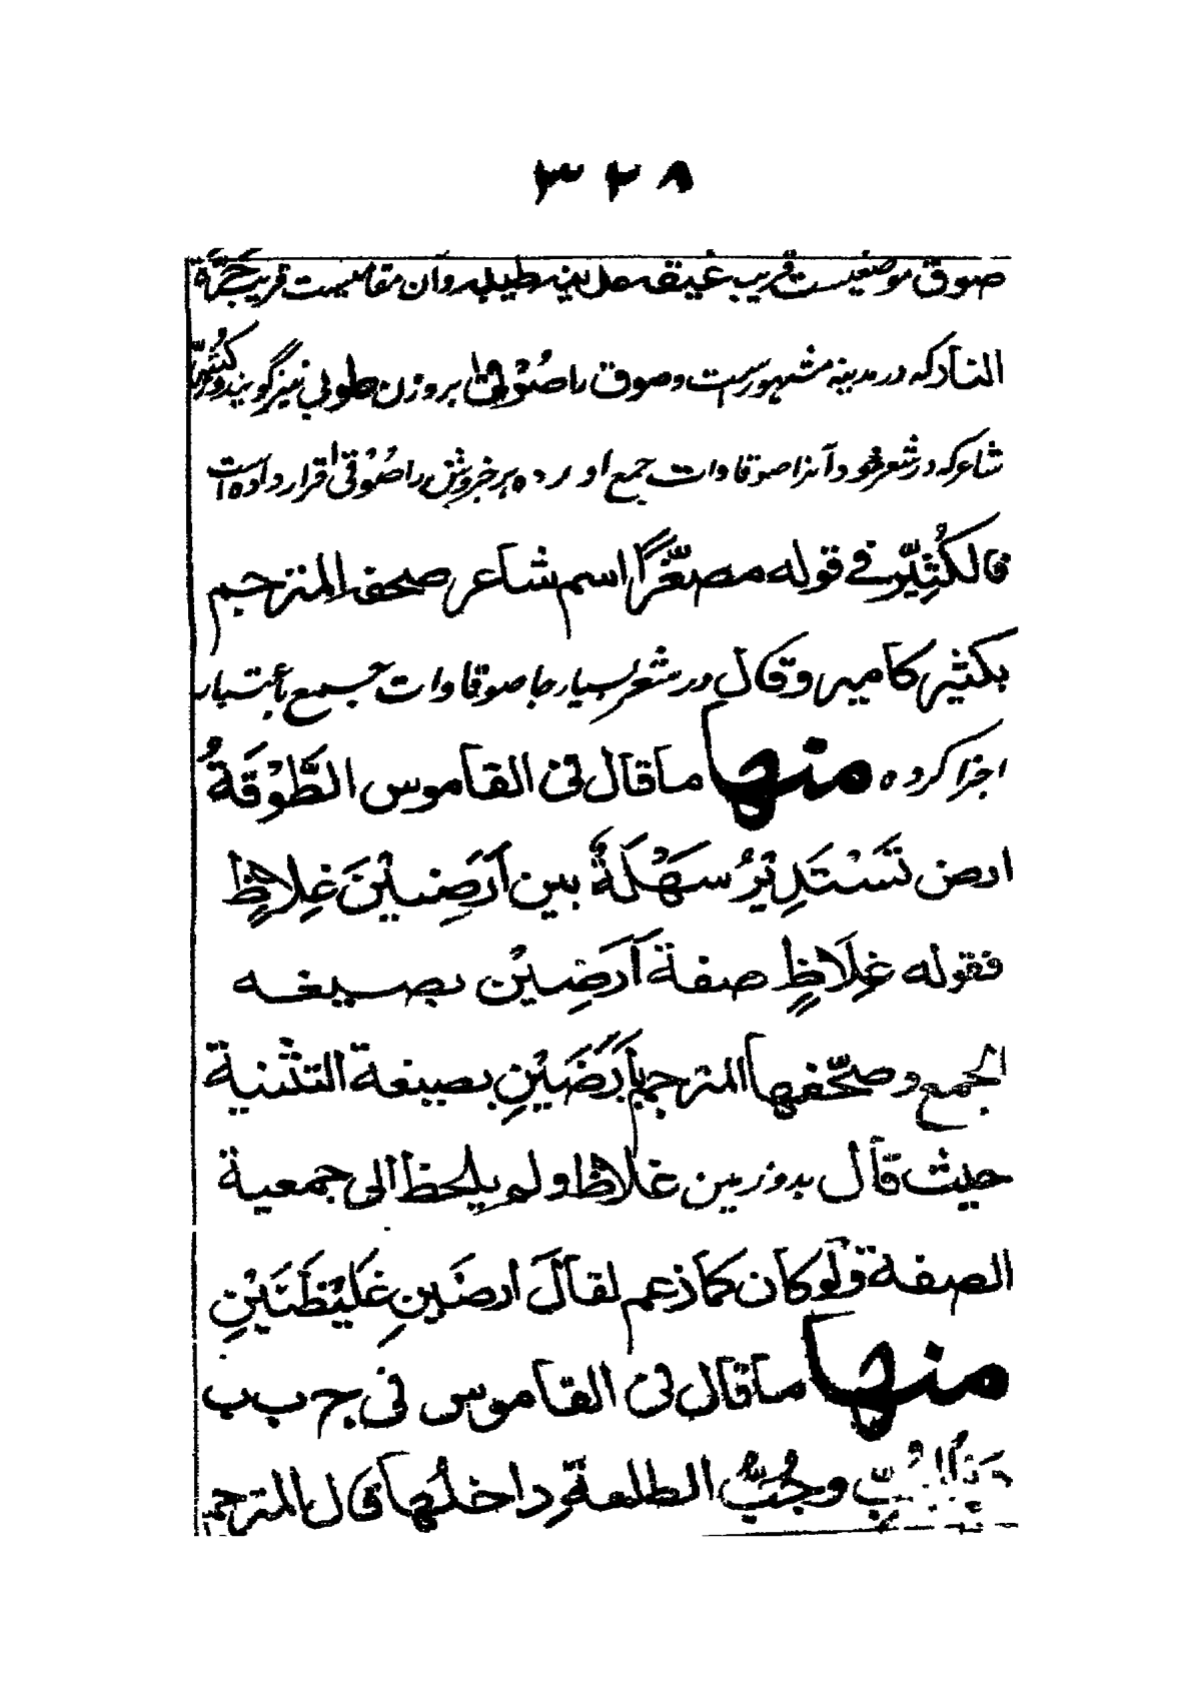 ٣٢٨
صوق موضعیست قریب غیقه مدینه طیبه و آن مقامیست قریب حرّة
النار که در مدینه مشهورست و صوق را صُوْقیٰ بر وزن طوبی نیز گویند و کُثَیِّر
شاعر که در شعر خود آنرا صوقاوات جمع آورده هر خروش را صُوْقیٰ قرار داده است
فالكُثيِّر في قوله مصغّرًا اسم شاعر صحفه المترجم
بكثير كامير وقال در شعر بسیار جا صوقاوات جمع باعتبار
اجزا کرده منها ما قال في القاموس الطَّوْقَةُ
ارض تَسْتَدِيْرُ سَهْلَةٌ بين اَرَضِيْنَ غِلاظٍ
فقوله غِلَاظٍ صفة اَرَضِيْن بصيغه
الجمع وصحّفها المترجم بِاَرَضَيْنِ بصيغة التثنية
حيث قال بدو زمین غلاظ ولم يلحظ الى جمعية
الصفة ولو كان كما زعم لقال ارضَينِ غَلَيْظَتَيْنِ
منها ما قال في القاموس في ج ب ب
وجُبُّ الطلعةِ داخلُها قال المترجم